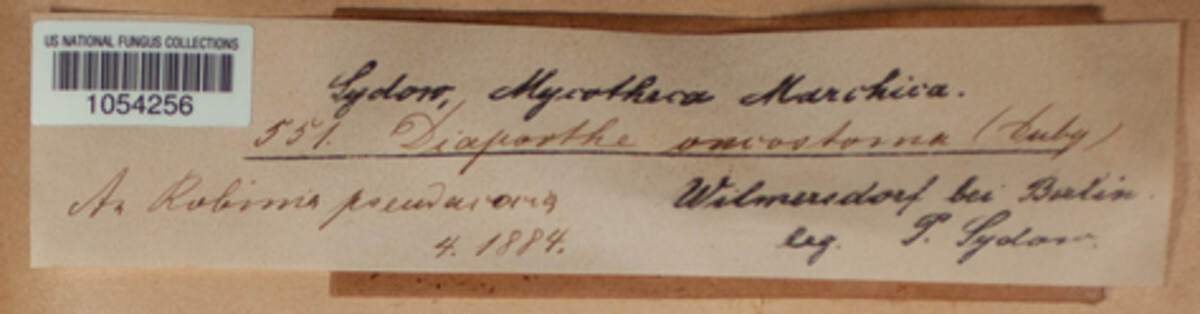 US NATIONAL FUNGUS COLLECTIONS
1054256
Sydow, Mycotheca Marchica.
551. Diaporthe oncostoma (Duby)
An Robinia pseudacacia
Wilmersdorf bei Berlin.
4. 1884.
leg. P. Sydow.